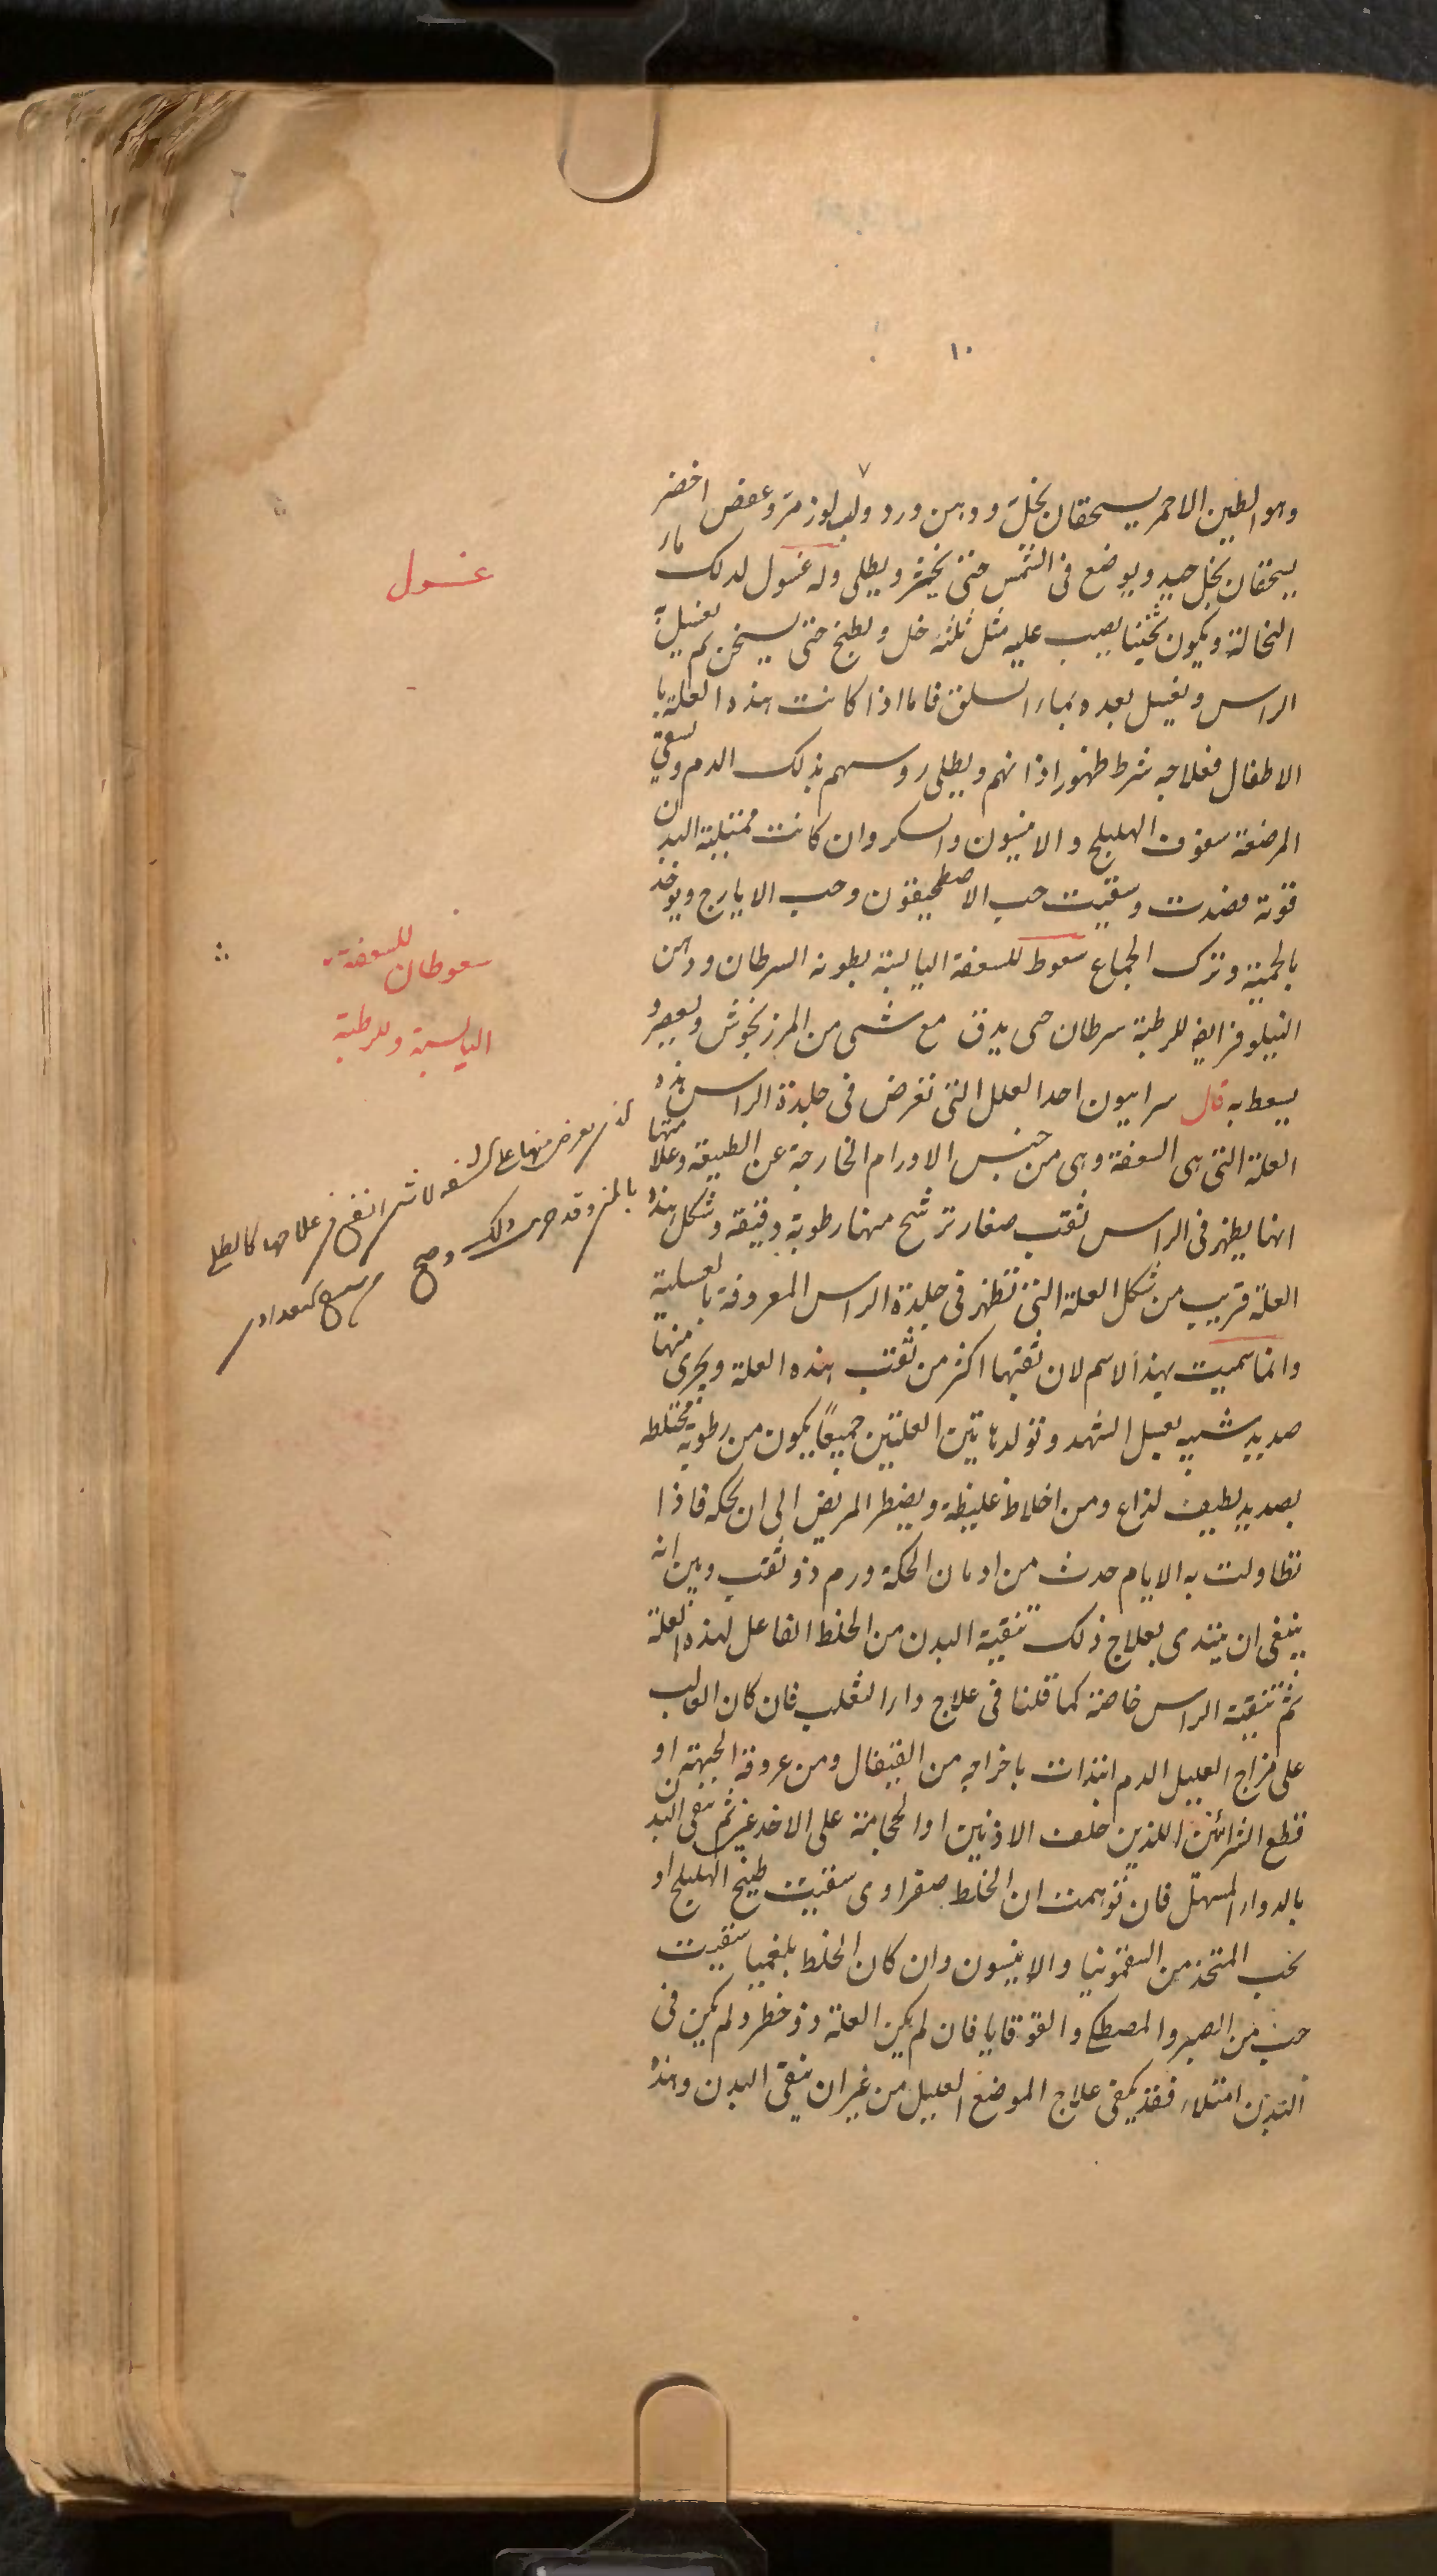 ١٠
وهو الطين الاحمر يسحقان بخل ودهن ورد ولب لوز مر وعفص اخضر
يسحقان بخل جيد ويوضع فى الشمس حتى يخثر ويطلى وله غسول لدلك ماء
النخالة ويكون ثخينا يصب عليه مثل ثلثه خل ويطبخ حتى يسخن ثم يغسل به
الراس ويغسل بعده بماء السلق فاما اذا كانت هذه العلة با
الاطفال فعلاجه شرط ظهور اذانهم ويطلى روسهم بذلك الدم وتسقى
المرضعة سفوف الهليلج والانيسون والسكر وان كانت ممتلية البدن
قوية فصدت وسقيت حب الاصطمحيقون وحب الايارج ويوخذ
بالحمية وترك الجماع سعوط للسعفة اليابسة بطونه السرطان ودهن
النيلوفر ايضا للرطبة سرطان حى يدق مع شى من المرزنجوش ويعصر و
يسعط به قال سرابيون احد العلل التى تعرض فى جلدة الراس هذه
العلة التى هى السعفة وهى من جنس الاورام الخارجة عن الطبيعة وعلامتها
انها يظهر فى الراس ثقب صغار ترشح منها رطوبة دقيقة وشكل هذه
العلة قريب من شكل العلة التى تظهر فى جلدة الراس المعروفة بالعسلية
وانما سميت بهذا الاسم لان ثقبها اكثر من ثقب هذه العلة ويجرى منها
صديد شبيه بعسل الشهد وتولد هاتين العلتين جميعًا يكون من رطوبة مختلطه
بصديد لطيف لذاع ومن اخلاط غليظة ويضطر المريض الى ان يحكه فاذا
تطاولت به الايام حدث من ادمان الحكة ورم ذو ثقب وبين انه
ينبغى ان يبتدى بعلاج ذلك تنقية البدن من الخلط الفاعل لهذه العلة
ثم تنقية الراس خاصة كما قلنا فى علاج داء الثعلب فان كان الغالب
على مزاج العليل الدم ابتدات باخراجه من القيفال ومن عروقه الجبهة او
قطع الشرائين اللذين خلف الاذنين او الحجامة على الاخدعين ثم ينقى البدن
بالدواء المسهل فان توهمت ان الخلط صفراوى سقيت طبيخ الهليلج او
بحب المتخذ من السقمونيا والانيسون وان كان الخلط بلغميا سقيت
حب من الصبر والمصطكى والقوقايا فان لم يكن العلة ذو خطر ولم يكن فى
البدن امتلاء فقد يكفى علاج الموضع العليل من غير ان ينقى البدن وهذه
غسول
سعوطان للسعفة
اليابسة وللرطبة